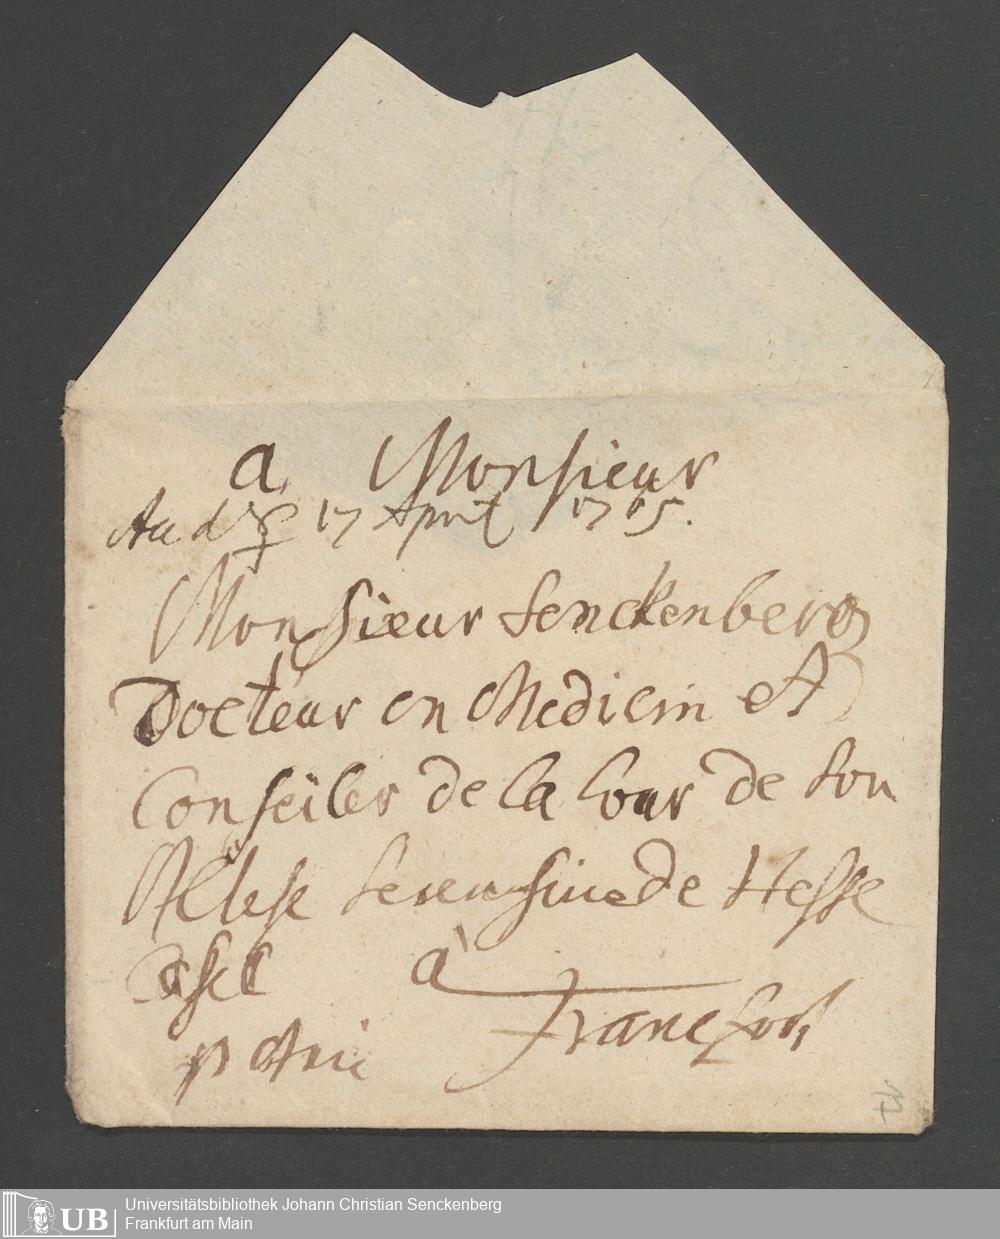 a Monsieur
17 April 1765.
Monsieur Senckenberg
Docteur en Medicin et
Conseiler de la Cour de son
Altese Serensime de Hesse
Casel à
Francfort
Universitätsbibliothek Johann Christian Senckenberg
Frankfurt am Main
UB